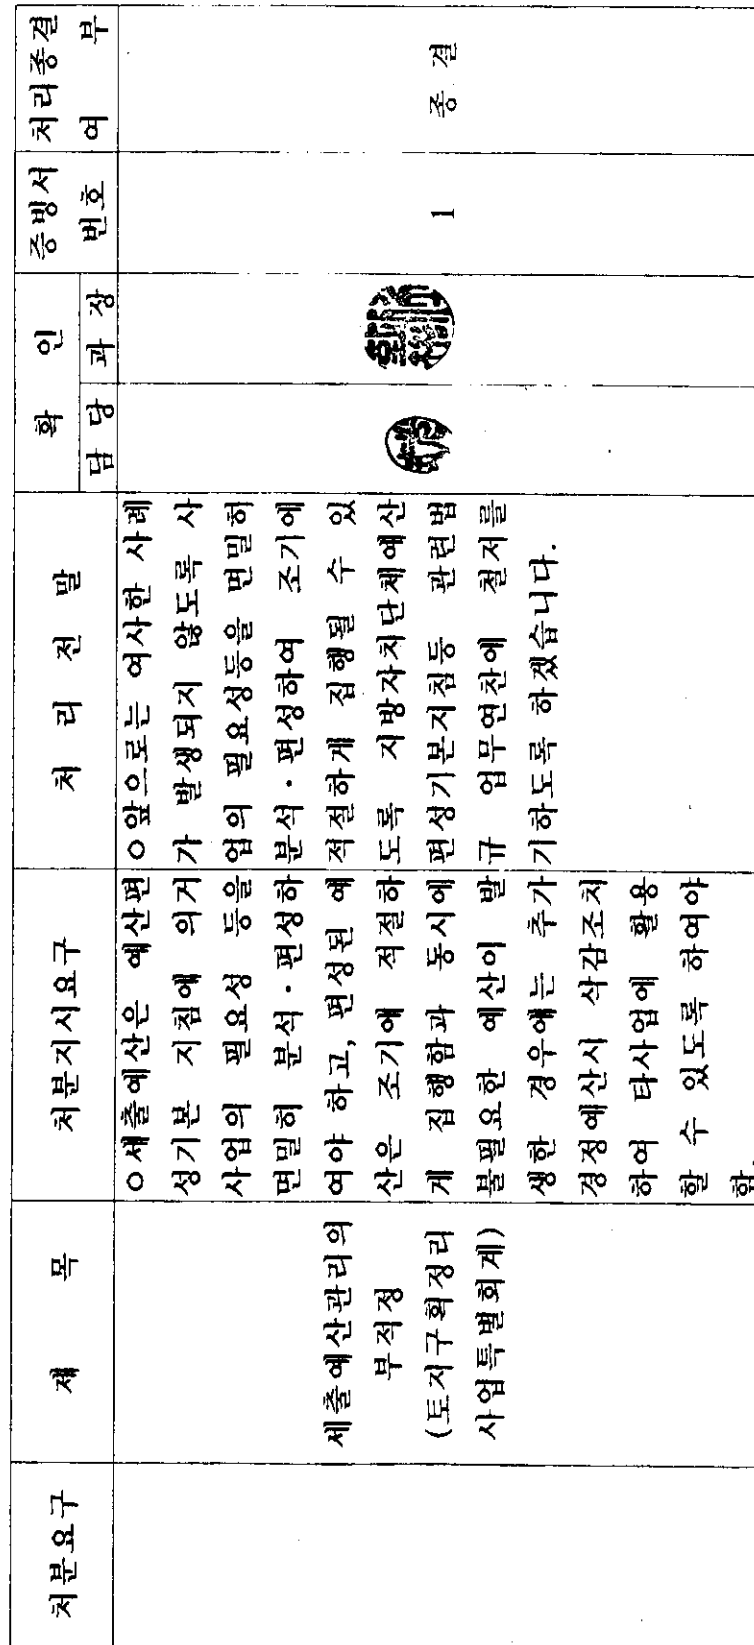 처분요구
제 목
처분지시요구
처 리 전 말
확 인
담 당
과 장
증빙서
번호
처리종결
여 부
세출예산관리의
부적정
(토지구획정리
사업특별회계)
○세출예산은 예산편
성기본 지침에 의거
사업의 필요성 등을
면밀히 분석·편성하
여야 하고, 편성된 예
산은 조기에 적절하
게 집행함과 동시에
불필요한 예산이 발
생한 경우에는 추가
경정예산시 삭감조치
하여 타사업에 활용
할 수 있도록 하여야
함.
○앞으로는 여사한 사례
가 발생되지 않도록 사
업의 필요성등을 면밀히
분석·편성하여 조기에
적절하게 집행될 수 있
도록 지방자치단체예산
편성기본지침등 관련법
규 업무연찬에 철저를
기하도록 하겠습니다.
1
종 결